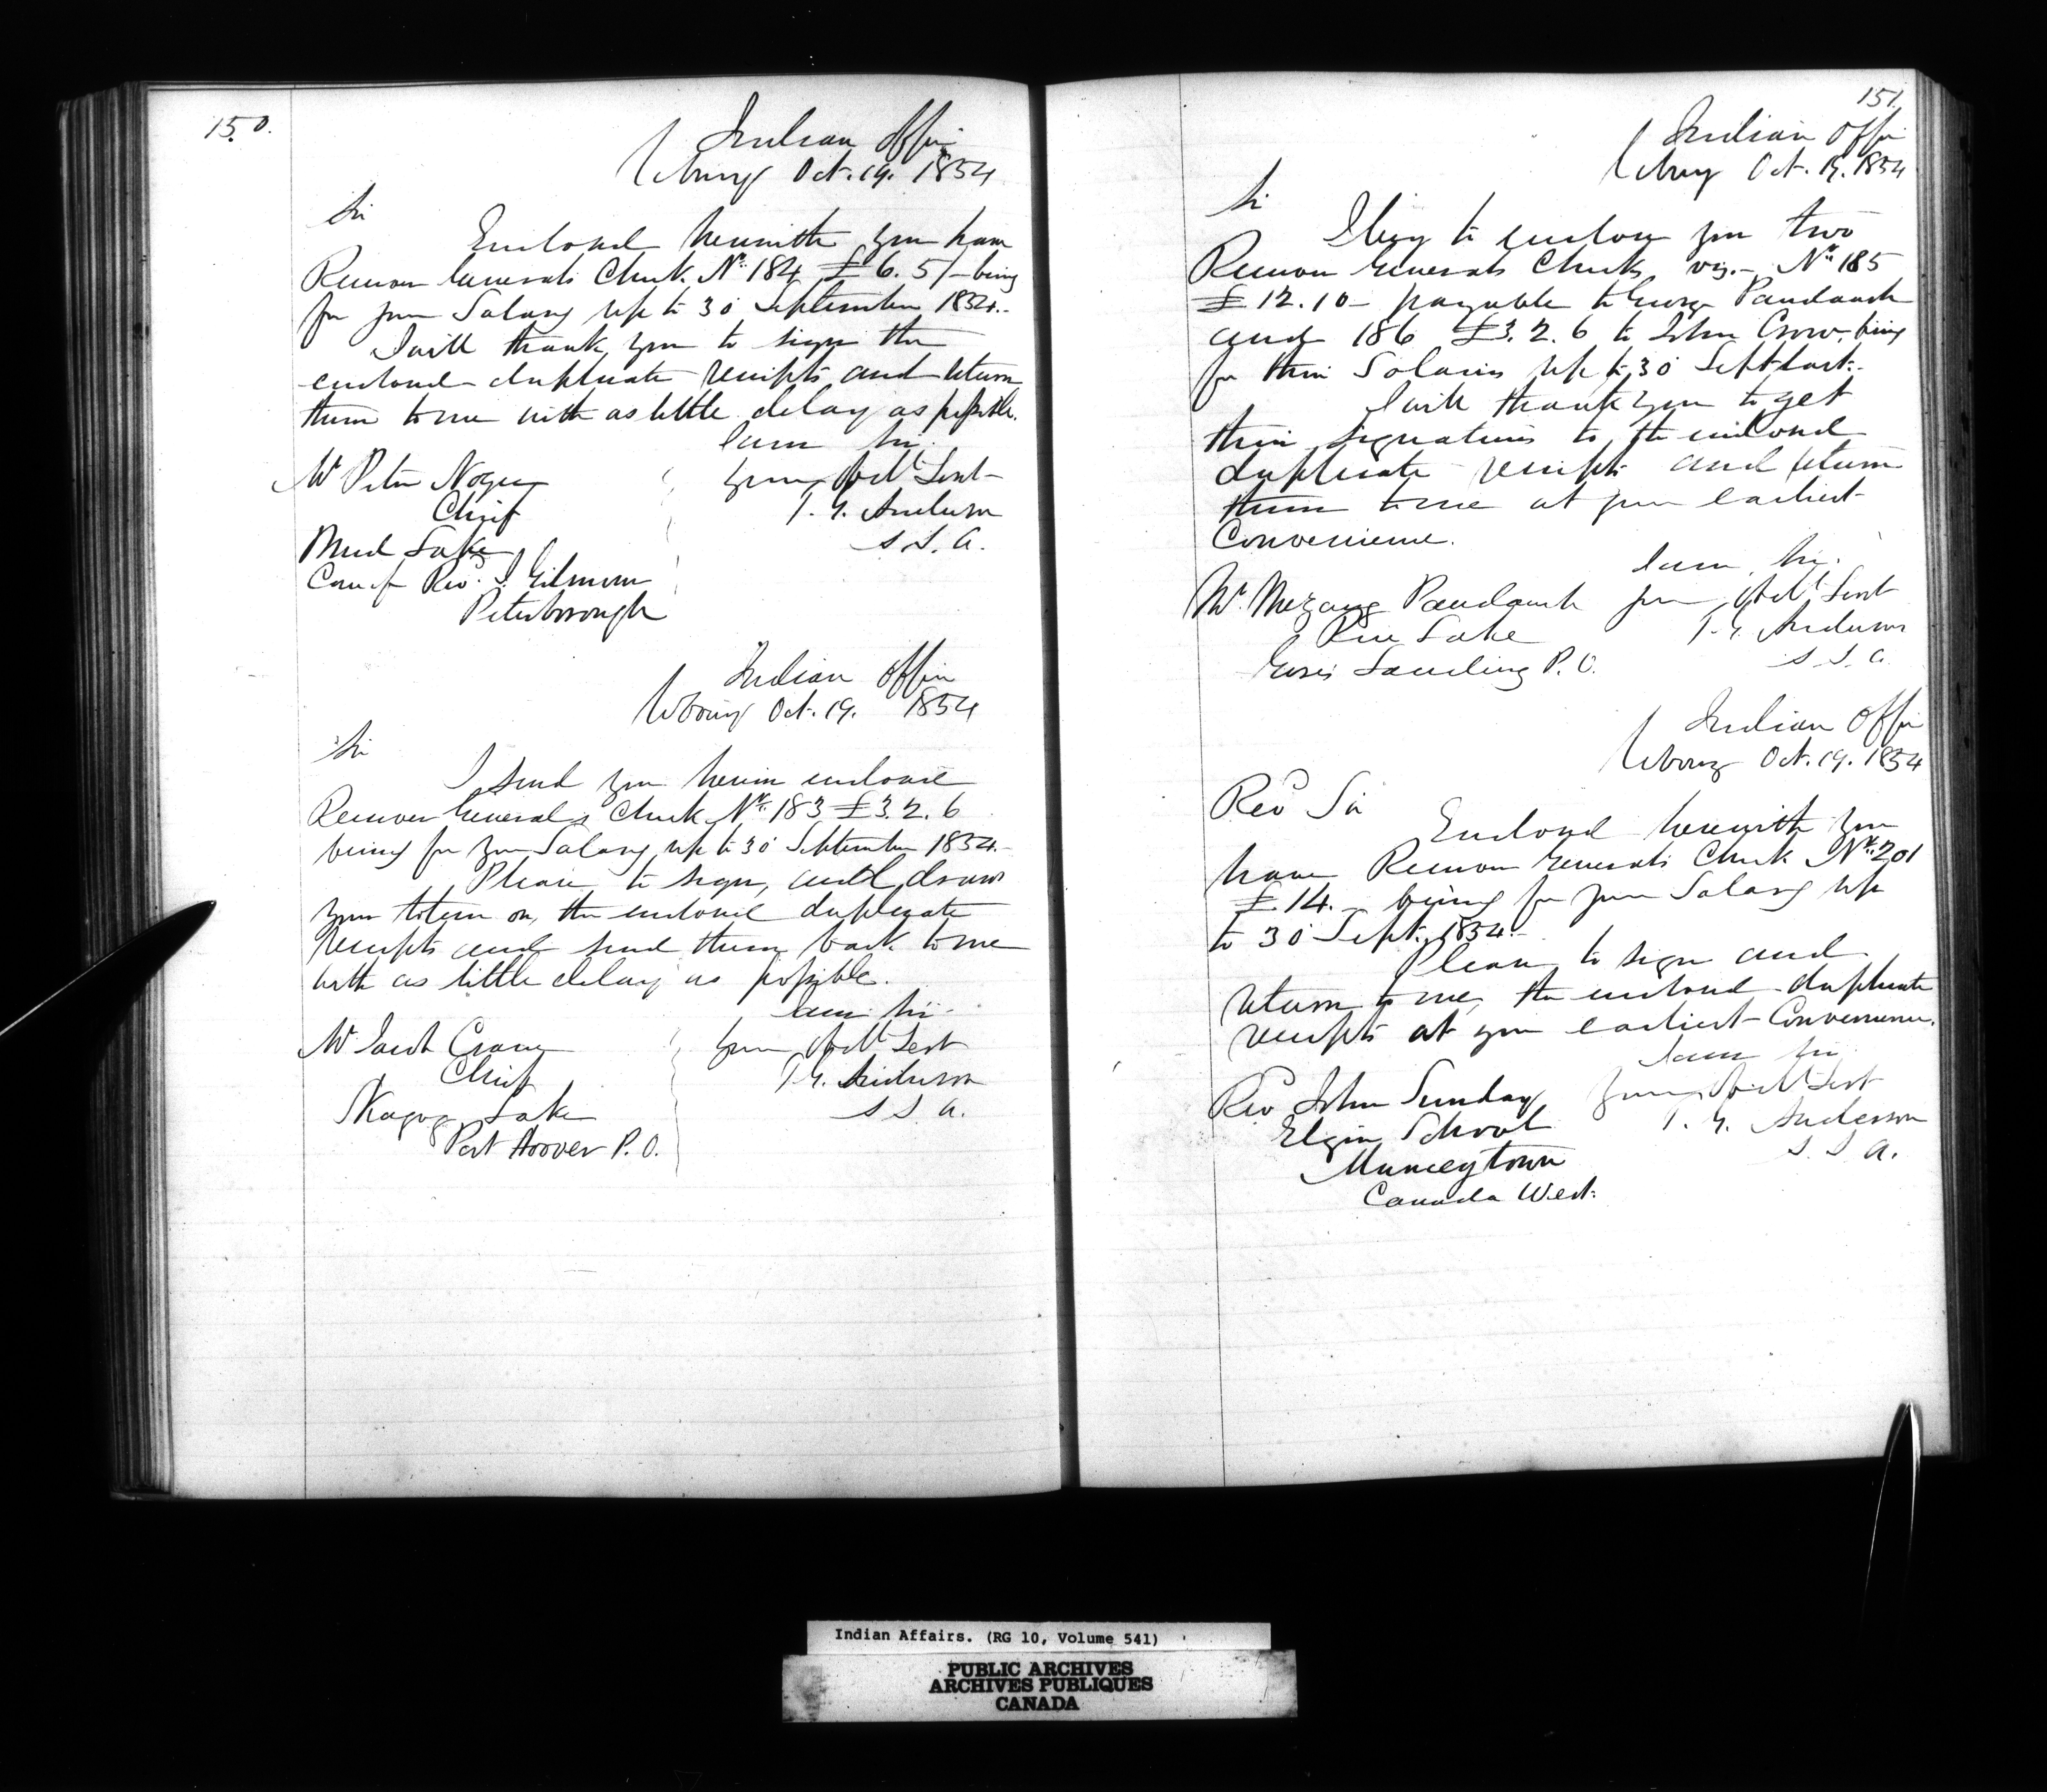 150.
Indian Office
Cobourg Oct. 19. 1854
Sir
Enclosed herewith you have
Receiver Generals Check Nr. 184 £6.5/- being
for your Salary up to 30 September 1854.-
I will thank you to sign the
enclosed duplicate receipts and return
them to me with as little delay as possible.
I am Sir.
Mr Peter Nogee your Obdt Servt
Chief T. G. Anderson
Mud Lake S. S. A.
Care of Revd. J. Gilmour
Peterborough
Indian Office
Cobourg Oct. 19. 1854
Sir
I send you herein enclosed
Receiver General's Check Nr. 183 £3.2.6
being for your Salary up to 30 September 1854.-
Please to sign, and draw
your totem on, the enclosed duplicate
receipts and send them back to me
with as little delay as possible.
I am Sir.
Mr Jacob Crane your Obdt Servt
Chief T. G. Anderson
Skugog Lake S. S. A.
Port Hoover P. O.
151.
Indian Office
Cobourg Oct. 19. 1854
Sir
I beg to enclose you two
Receiver Generals Checks, viz.- Nr. 185
£12.10- payable to George Paudaush
and 186 £3.2.6 to John Crow- being
for their Salaries up to 30 Sept last.-
I will thank you to get
their signatures to the enclosed
duplicate receipts and return
them to me at your earliest
Convenience.
I am, Sir.
Mr. Mezang Paudaush your Obdt Servt
Rice Lake T. G. Anderson
Gores Landing P. O. S. S. A.
Indian Office
Cobourg Oct. 19. 1854
Revd Sir
Enclosed herewith you
have Receiver Generals Check Nr. 201
£14.- being for your Salary up
to 30 Sept. 1854.-
Please to sign and
return to me, the enclosed duplicate
receipts at your earliest Convenience.
I am Sir
Revd John Sunday your Obdt Servt
Elgin School T. G. Anderson
Munceytown S. S. A.
Canada West.
Indian Affairs. (RG 10, Volume 541)
PUBLIC ARCHIVES
ARCHIVES PUBLIQUES
CANADA